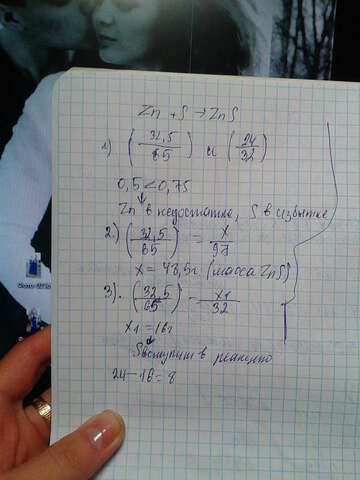 Zn + S → ZnS
1) (32,5/65) и (24/32)
0,5 < 0,75
Zn в недостатке, S в избытке
2) (32,5/65) = x/97
x = 48,5г (масса ZnS)
3). (32,5/65) = x1/32
x1 = 16г
S вступит в реакцию
24 - 16 = 8